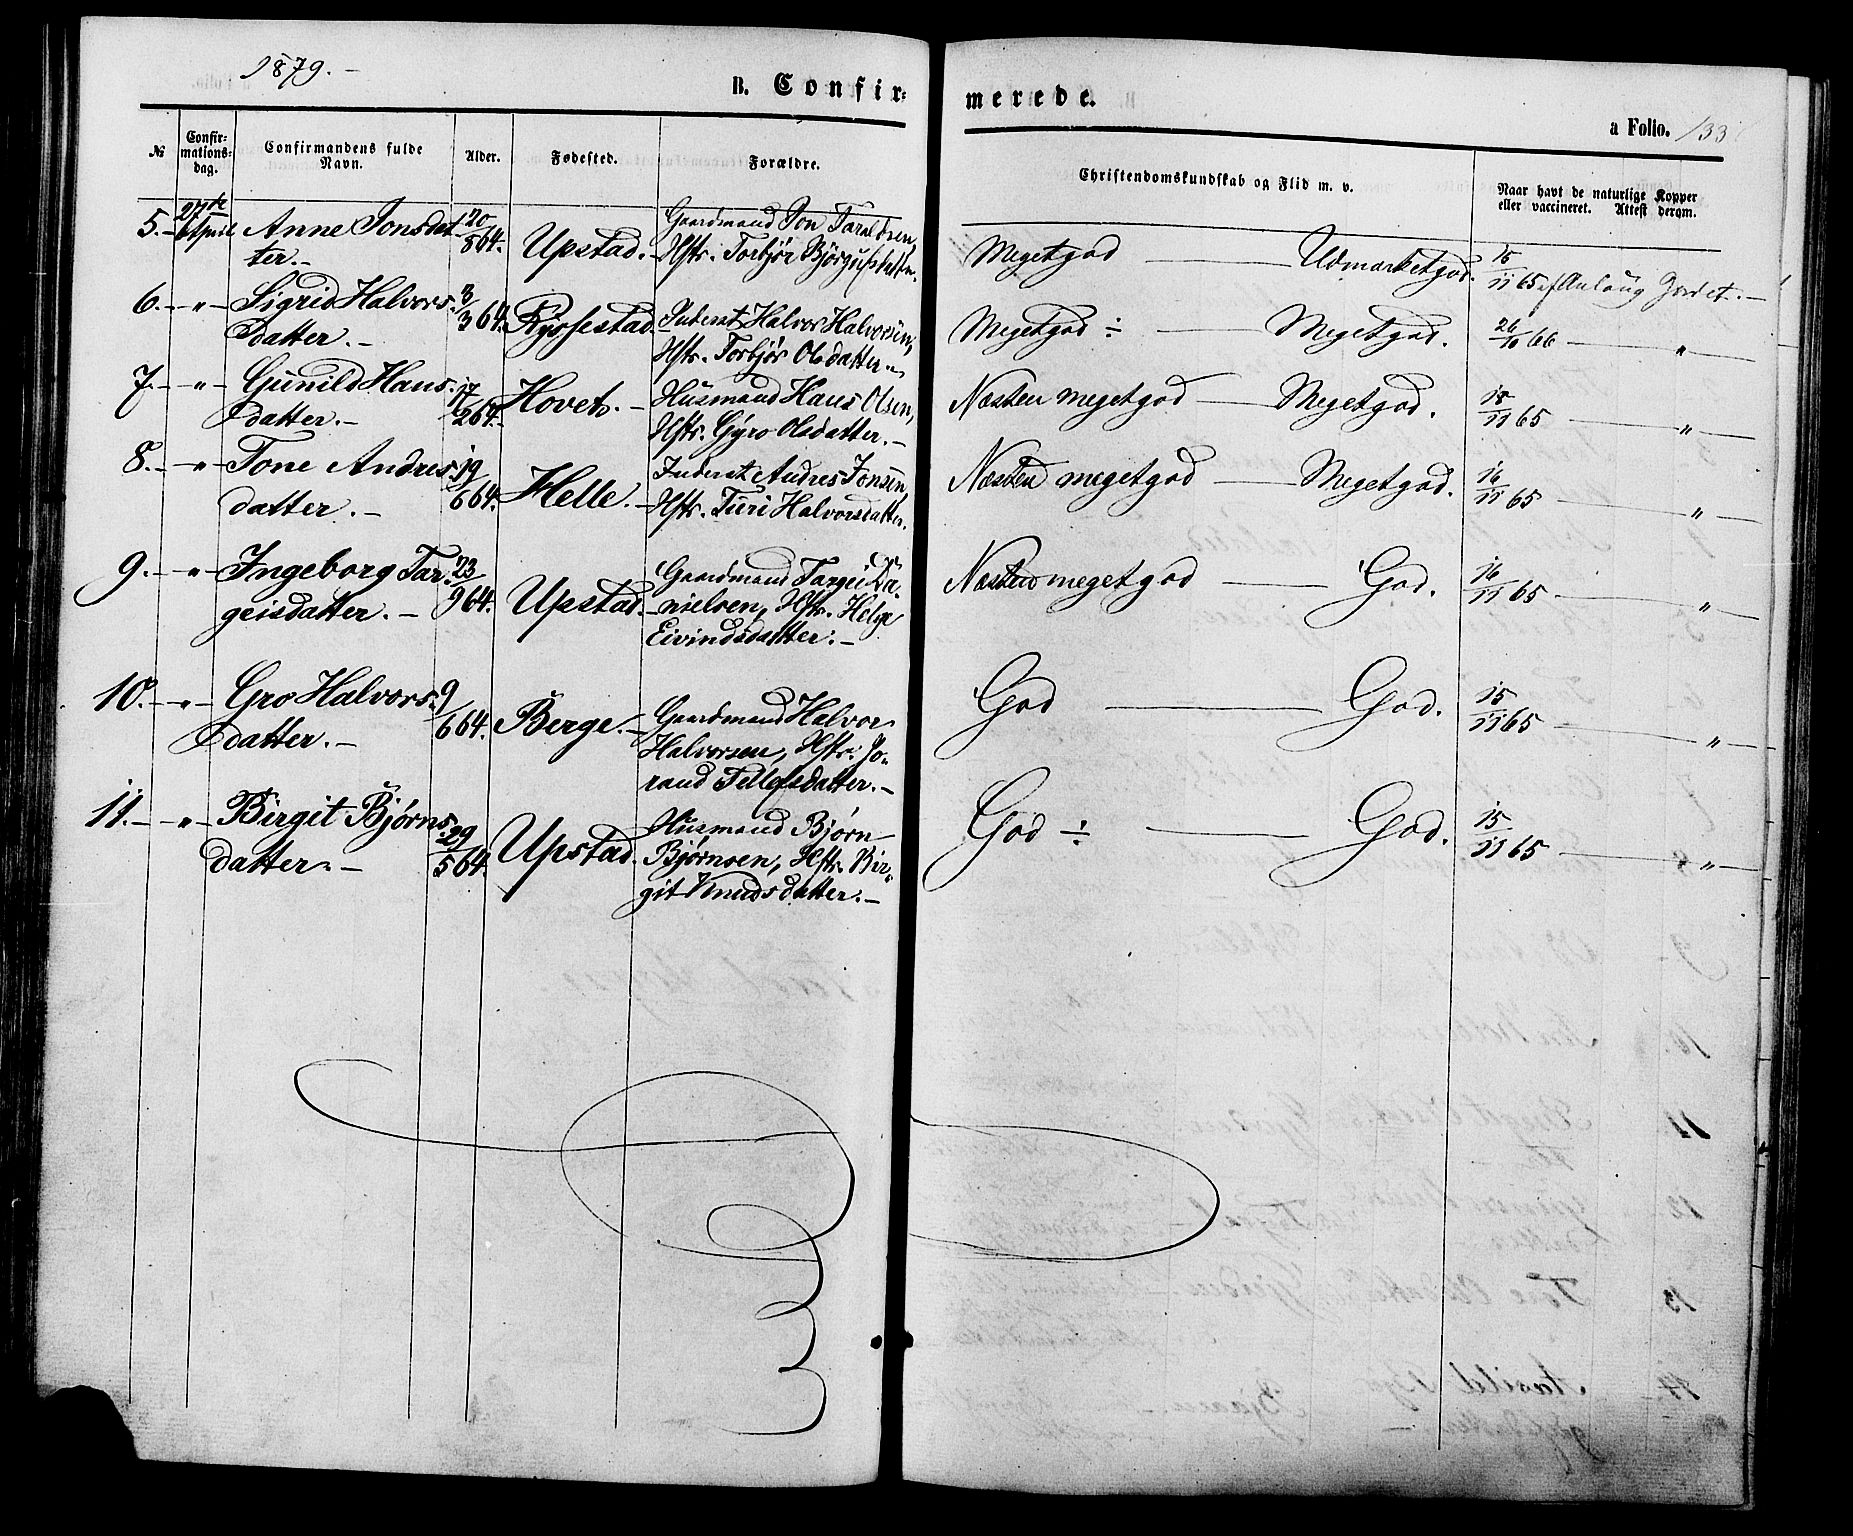 1879.-
B. Confirmerede.
a Folio. 133
№
Confir-
mations-
dag.
Confirmandens fulde
Navn.
Alder.
Fødested.
Forældre.
Christendomskundskab og Flid m. v.
Naar havt de naturlige Kopper
eller vaccineret. Attest derom.
5.- 27de April Anne Jonsdat-
ter.- 20/8 64. Upstad.- Gaardmand Jon Taraldsen,
Hstr. Torbjør Bjørgufsdatter
Megetgod — Udmærketgod. 15/11 65 af Anlaug Jordet.-
6.- "- Sigrid Halvors-
datter.- 3/3 64. Rysstad Inderst Halvor Halvorsen,
Hstr. Torbjør Olsdatter.-
Megetgod ÷ — Megetgod. 26/10 66 — "
7.- "- Gunild Hans-
datter.- 17/2 64. Hovet.- Husmand Hans Olsen,
Hstr. Gyro Olsdatter.-
Næsten megetgod — Megetgod. 18/11 65 — "
8.- "- Tone Andres-
datter.- 19/6 64. Helle.- Inderst Andres Jonsen
Hstr. Turi Halvorsdatter.
Næsten megetgod — Megetgod. 16/11 65 — "
9.- "- Ingeborg Tar-
geisdatter.- 23/9 64. Upstad.- Gaardmand Targei Da-
nielsen, Hstr. Helge
Eivindsdatter.-
Næsten megetgod — God. 16/11 65 — "
10.- "- Gro Halvors-
datter.- 9/6 64. Berge.- Gaardmand Halvor
Halvorsen, Hstr. Jo-
rand Tellefsdatter.-
God — God. 15/11 65 — "
11.- "- Birgit Bjørns-
datter.- 29/5 64. Upstad. Husmand Bjørn
Bjørnsen, Hstr. Bir-
git Knudsdatter.-
God ÷ — God. 15/11 65 — "